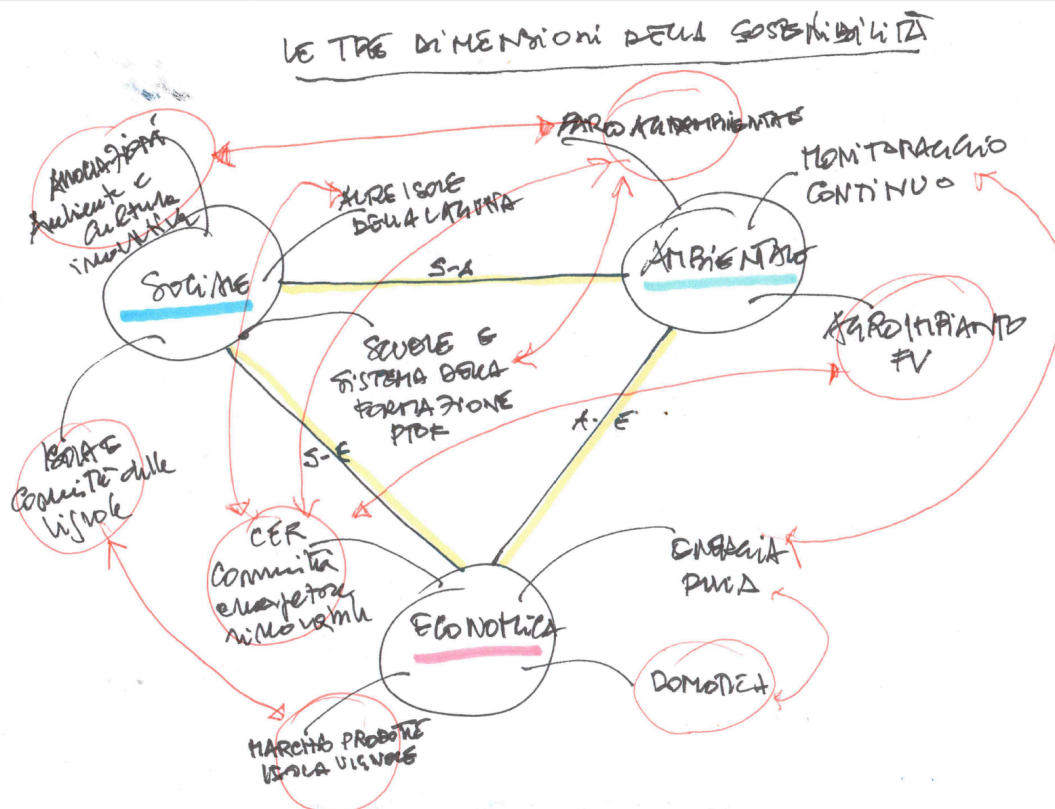 LE TRE DIMENSIONI DELLA SOSTENIBILITÀ
PARCO AGROAMBIENTALE
MONITORAGGIO
CONTINUO
ASSOCIAZIONI
Ambiente e
Cultura
ALTRE ISOLE
DELLA LAGUNA
S-A
SOCIALE
AMBIENTALE
AGROIMPIANTO
FV
SCUOLE E
SISTEMA DELLA
FORMAZIONE
A-E
S-E
ISOLA E
Comunità delle
Vignole
CER
Comunità
energetiche
rinnovabili
ENERGIA
PULITA
ECONOMICA
DOMOTICA
MARCHIO PRODOTTI
ISOLA VIGNOLE